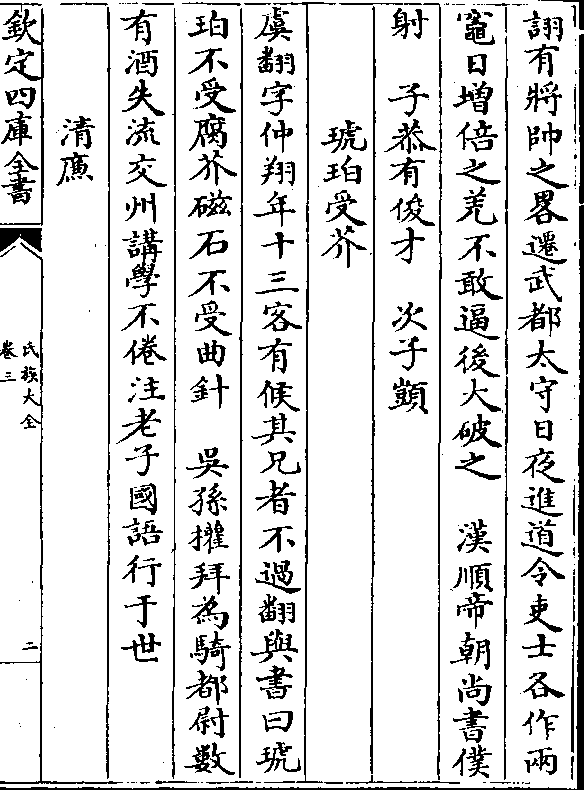 詡有將帥之畧遷武都太守日夜進道令吏士各作兩
竈日增倍之羌不敢逼後大破之　漢順帝朝尚書僕
射　子恭有俊才　次子顗
琥珀受芥
虞翻字仲翔年十三客有候其兄者不過翻與書曰琥
珀不受腐芥磁石不受曲針　吳孫權拜為騎都尉數
有酒失流交州講學不倦注老子國語行于世
清廉
欽定四庫全書
氏族大全
卷三
二